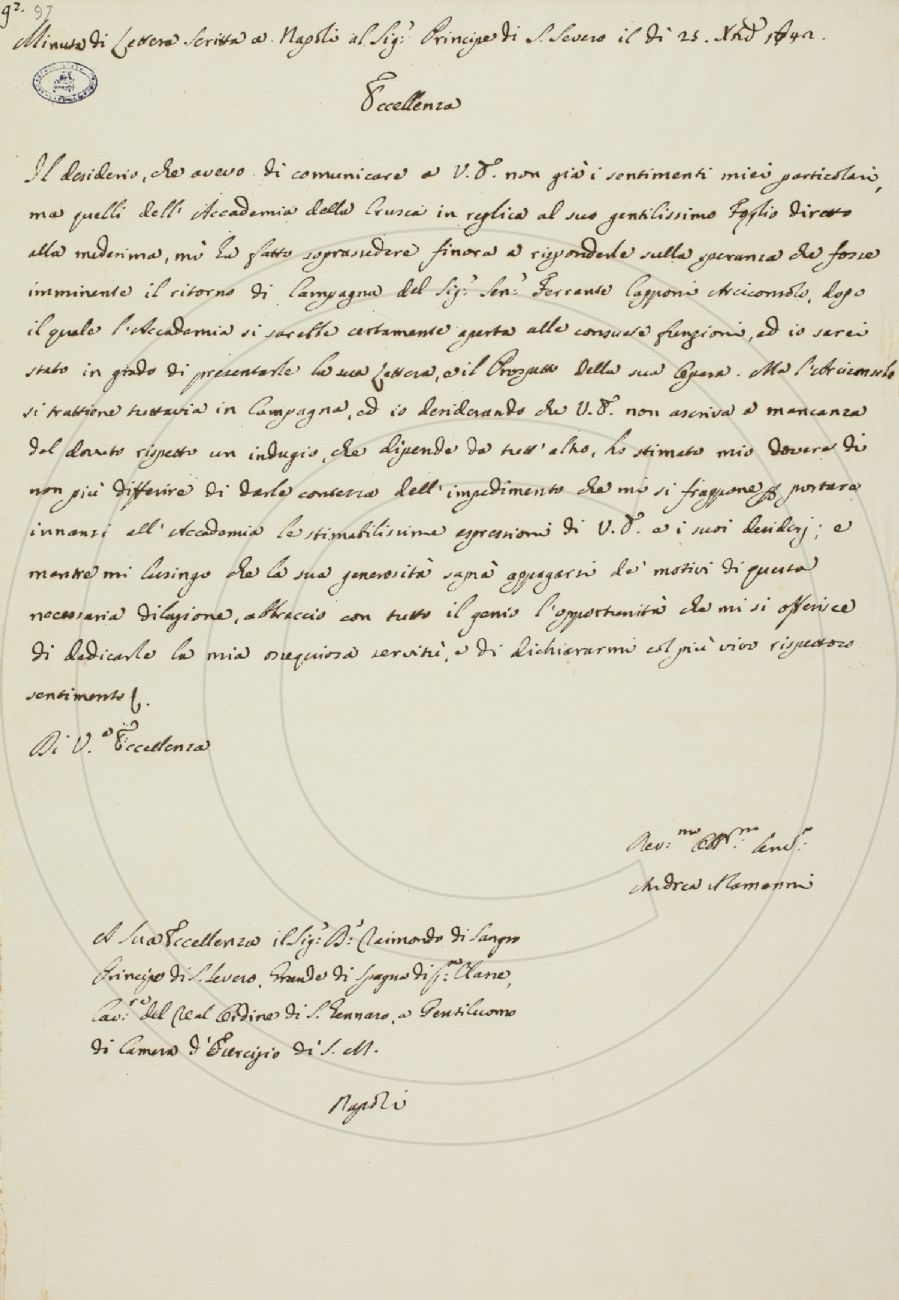 92. 97
Minuta di Lettera Scritta a Napoli al Sig.r Principe di S. Severo il di 25. 9bre 1742.
Eccellenza
Il desiderio, che avevo di comunicare a V. E. non già i sentimenti miei particolari,
ma quelli dell' Accademia della Crusca in replica al suo gentilissimo Foglio diretto
alla medesima, mi ha fatto soprassedere finora a risponderle sulla speranza che fosse
imminente il ritorno di Campagna del Sig.r Sen.r Ferrante Capponi Arciconsolo, dopo
il quale l'Accademia si sarebbe certamente aperta alle consuete funzioni, ed io sarei
stato in grado di presentarle la sua Lettera, e il Prospetto della sua Opera. Ma l'Arciconsolo
si trattiene tuttavia in Campagna, ed io desiderando che V. E. non ascriva a mancanza
del dovuto rispetto un indugio, che dipende da tutt' altro, ho stimato mio dovere di
non più differire di darle contezza dell' impedimento che mi si frappone portare
innanzi all' Accademia le stimabilissime espressioni di V. E. e i suoi desiderj; e
mentre mi lusingo che la sua generosità saprà appagarsi de' motivi di questa
necessaria dilazione, abbraccio con tutto il genio l'opportunità che mi si offerisce
di dedicarle la mia ossequiosa servitù, e di dichiararmi col più vivo rispettoso
sentimento
Di V.a Eccellenza
Dev.mo Obb.mo Serv.r
Andrea Alamanni
A Sua Eccellenza il Sig.r D. Raimondo di Sangro
Principe di S. Severo, Grande di Spagna di p.ma Classe,
Cav.re del Real Ordine di S. Gennaro, e Gentiluomo
di Camera d'Esercizio di S. M.
Napoli